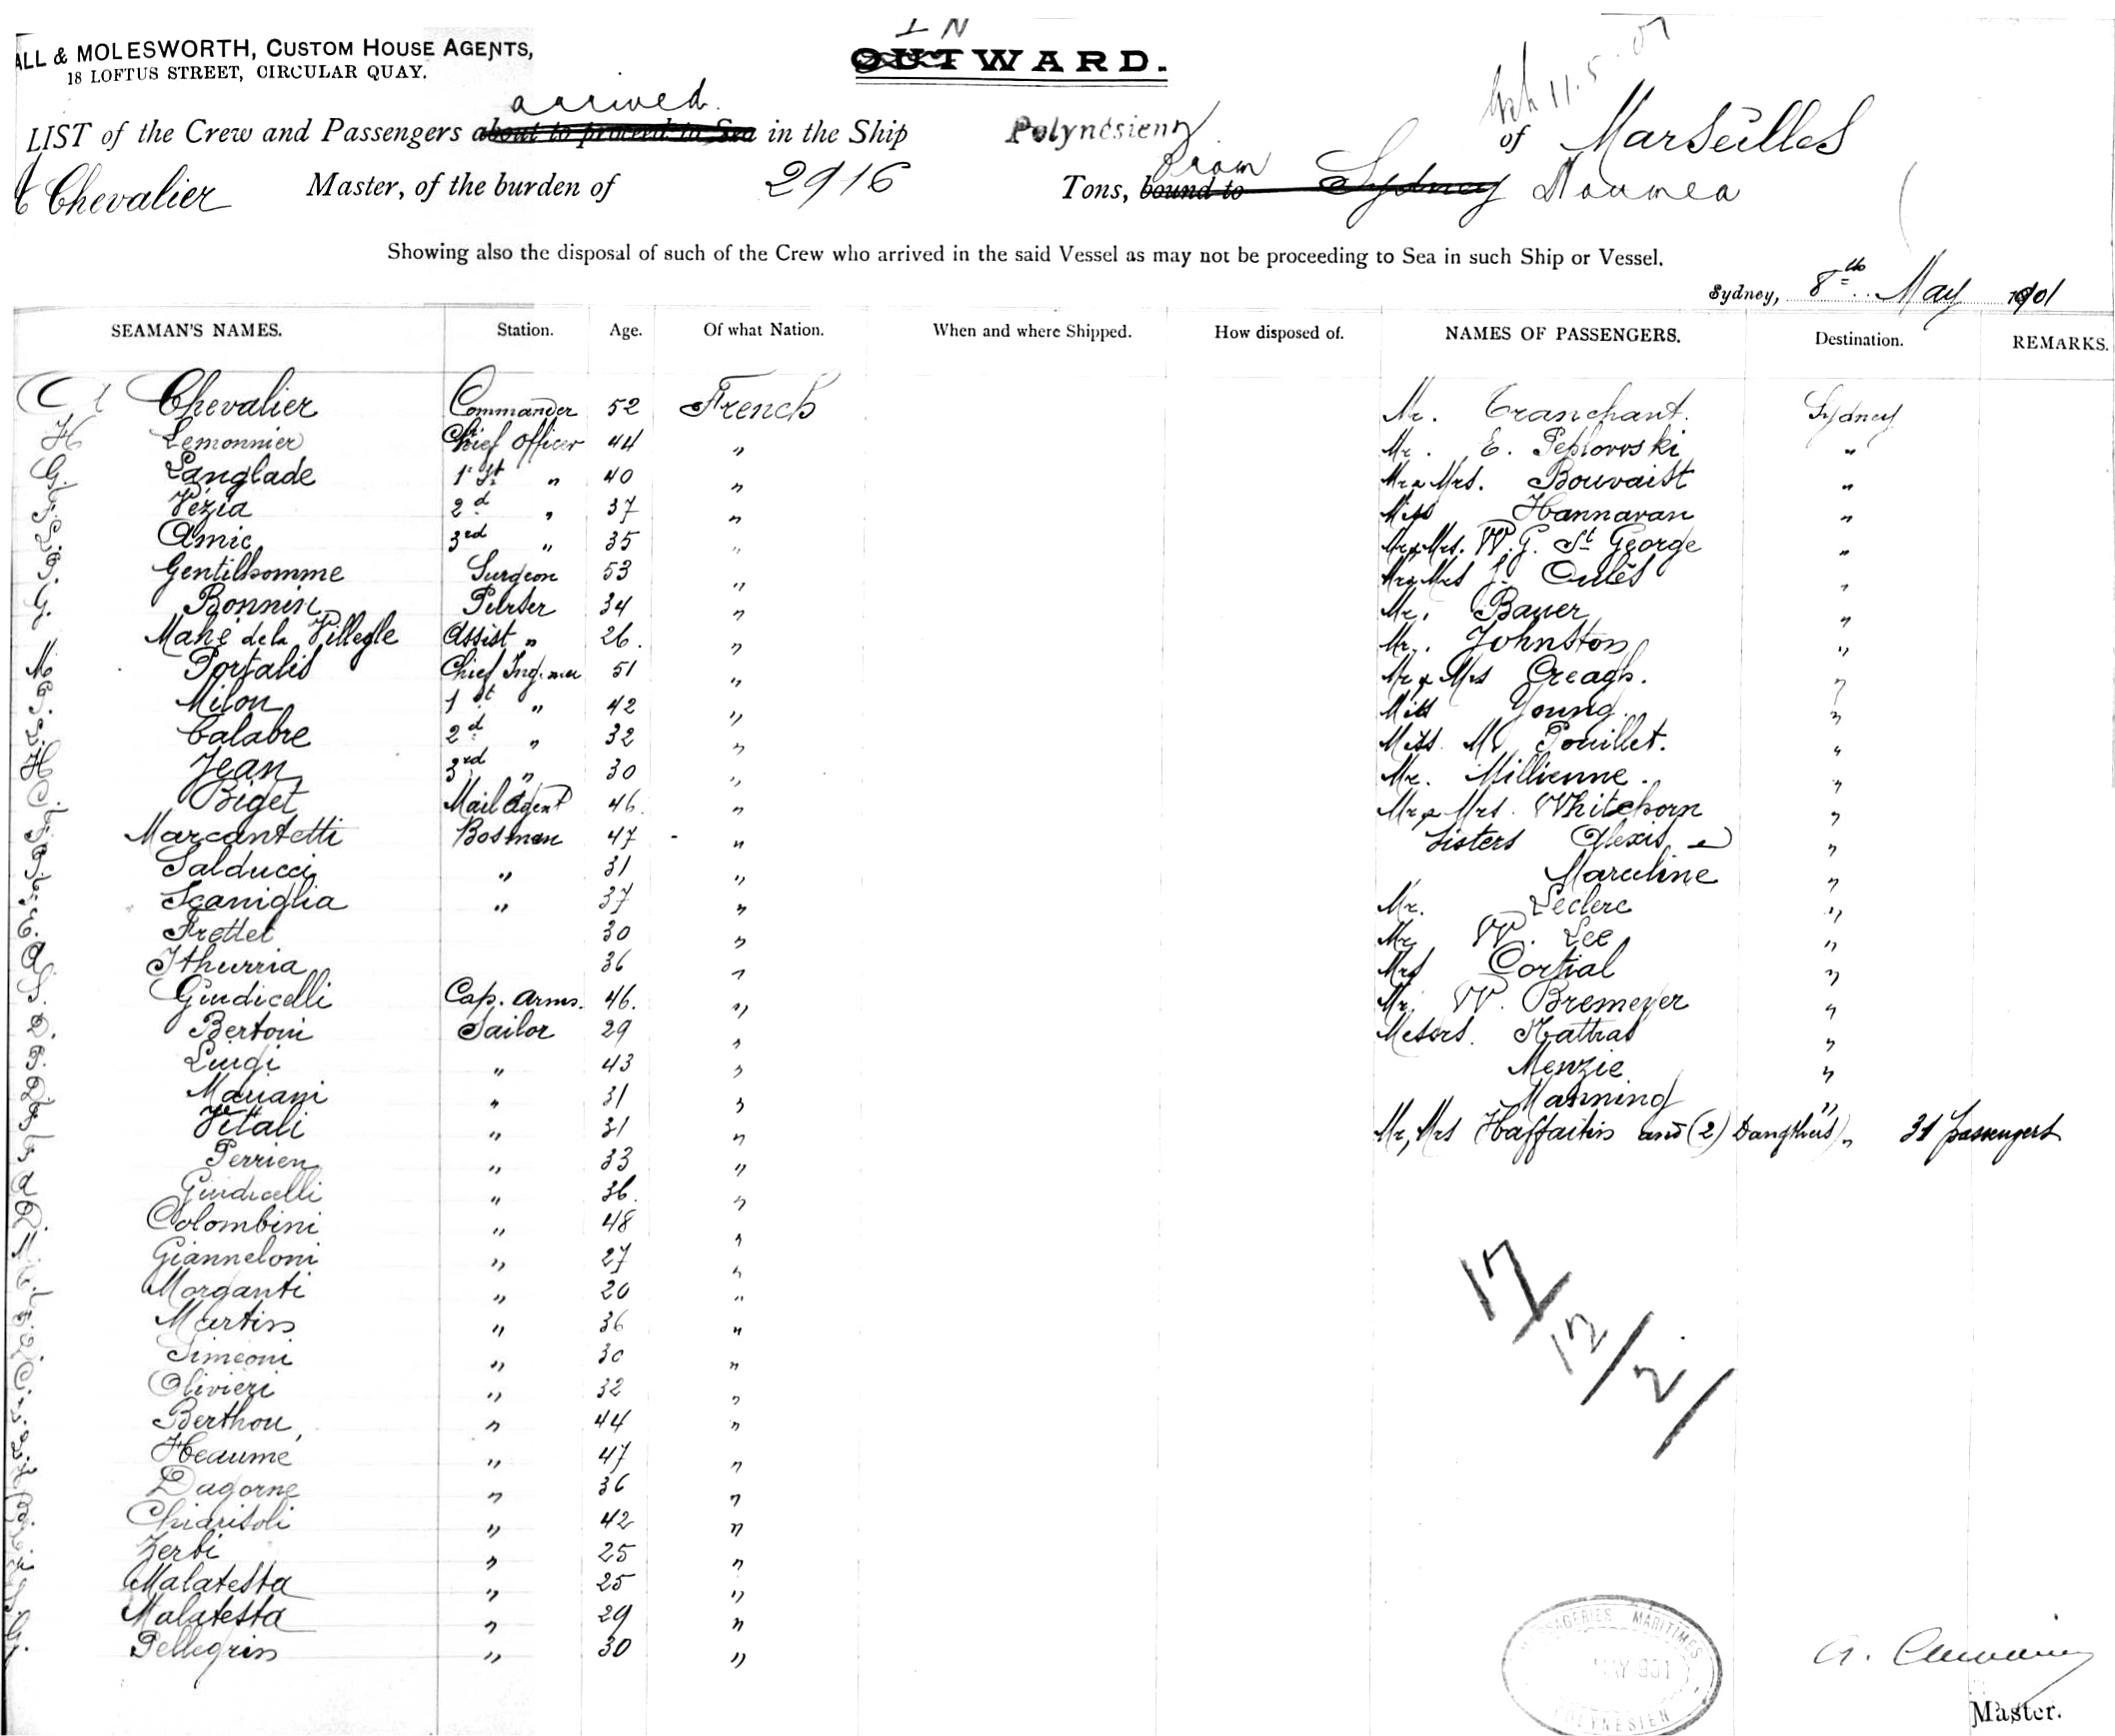 IN
ALL & MOLESWORTH, CUSTOM HOUSE AGENTS,
18 LOFTUS STREET, CIRCULAR QUAY.
OUTWARD.
11.5.01
arrived
LIST of the Crew and Passengers about to proceed to Sea in the Ship Polynésien of Marseilles
from
Chevalier Master, of the burden of 2916 Tons, bound to Sydney Noumea
Showing also the disposal of such of the Crew who arrived in the said Vessel as may not be proceeding to Sea in such Ship or Vessel.
Sydney, 8th May 1901
SEAMAN'S NAMES. Station. Age. Of what Nation. When and where Shipped. How disposed of. NAMES OF PASSENGERS. Destination. REMARKS.
Chevalier Commander 52 French Mr. Tranchant. Sydney
H Lemonnier Chief Officer 44 " Mr. E. Peplowski "
G. Langlade 1st " 40 " Mr & Mrs. Bouvaist "
Vézia 2d " 37 " Miss Hannavan "
Amic 3rd " 35 " Mr & Mrs. W. G. St George "
Gentilhomme Surgeon 53 " Mr & Mrs J. Oulès "
G. Bonnin Purser 34 " Mr. Bauer "
Mahé de la Villegle Assist " 26. " Mr. Johnston "
M Portalis Chief 51 " Mr & Mrs Creagh. "
Milon 1st " 42 " Miss Young "
Calabre 2d " 32 " Miss M. Pouillet. "
H Jean 3rd " 30 " Mr. Millienne. "
Biget Mail Agent 46. " Mr & Mrs. Whitehorn "
Marcantetti Bosman 47 - " Sisters Alexis "
Salducci " 31 " Marceline "
Scaniglia " 37 " Mr. Leclerc "
Frettel 30 " Mr W. Lee "
Ithurria 36 " Mrs Cortial "
Giudicelli Cap. Arms. 46. " Mr. W. Bremeyer "
Bertoni Sailor 29 " Messrs. Hattras "
Luigi " 43 " Menzie "
Mariani " 31 " Manning "
Vitali " 31 " Mr, Mrs and (2) Daugthers " 31 passengers
Perrien " 33 "
Giudicelli " 36. "
Colombini " 48 "
Gianneloni " 27 "
Morganti " 20 "
Martin " 36 "
Simeoni " 30 "
Olivieri " 32 "
Berthou, " 44 "
Heaumé " 47 "
Dagorne " 36 "
Chiarisoli " 42 "
Zerbi " 25 "
Malatesta " 25 "
Malatesta " 29 "
Pellegrin " 30 "
17/12/21
MESSAGERIES MARITIMES
MAY 901
POLYNESIEN
Master.